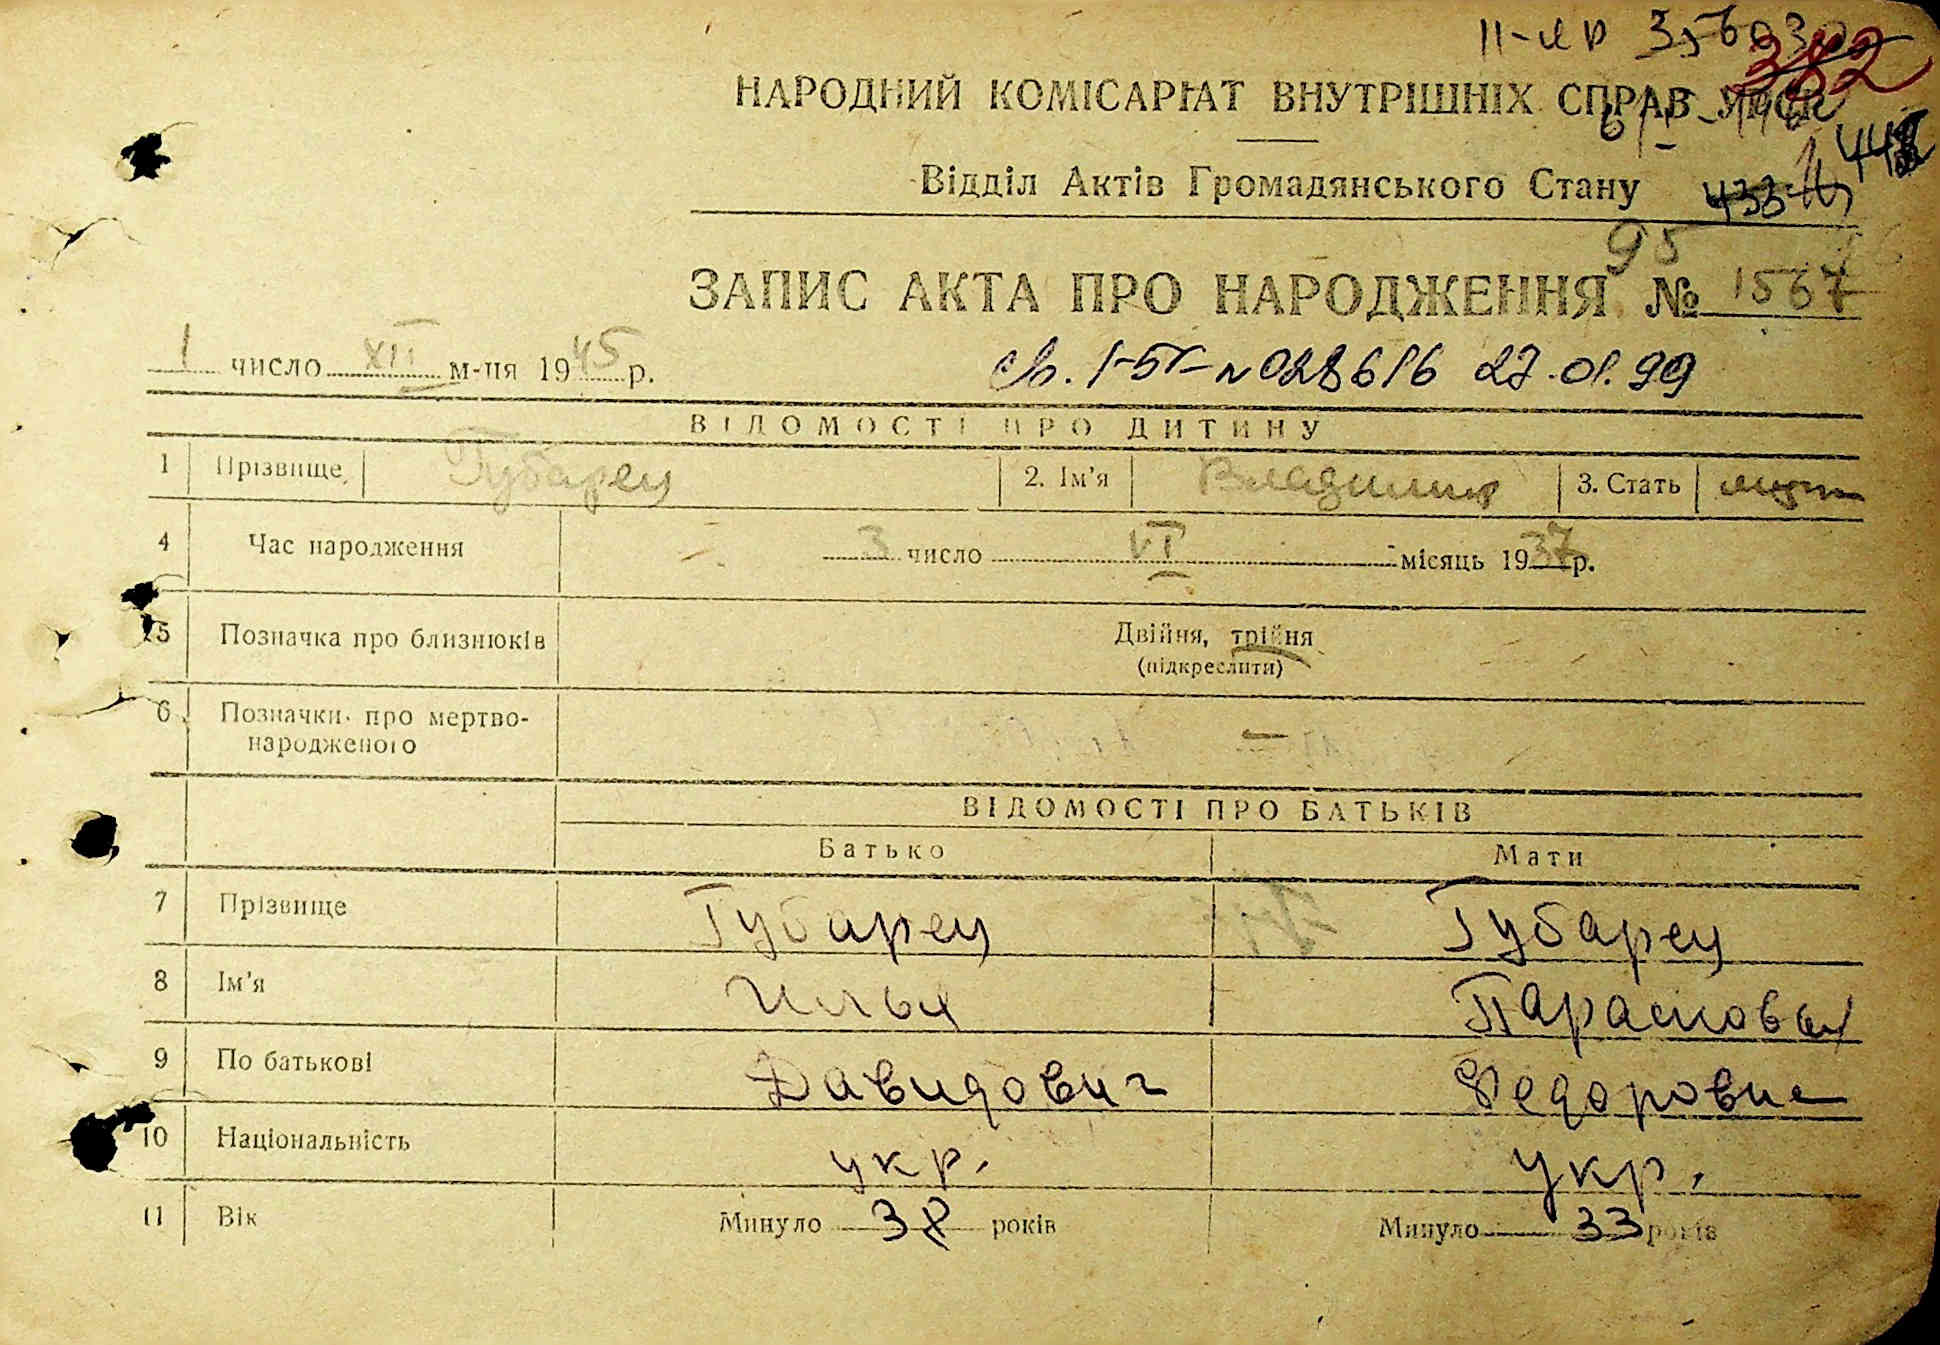 НАРОДНИЙ КОМІСАРІАТ ВНУТРІШНІХ СПРАВ УРСР
382
Відділ Актів Громадянського Стану
433
95
ЗАПИС АКТА ПРО НАРОДЖЕННЯ № 1567
1 число XII м-ця 1945 р.
св. І-БК №028616 27.01.99
ВІДОМОСТІ ПРО ДИТИНУ
1 Прізвище Губарец 2. Ім'я Владимир 3. Стать муж
4 Час народження 3 число VI місяць 1937 р.
5 Позначка про близнюків Двійня, трійня
(підкреслити)
6 Позначки про мертво-
народженого —
ВІДОМОСТІ ПРО БАТЬКІВ
Батько Мати
7 Прізвище Губарец Губарец
8 Ім'я Илья Парасковья
9 По батькові Давидович Федоровна
10 Національність укр. укр.
11 Вік Минуло 38 років Минуло 33 років